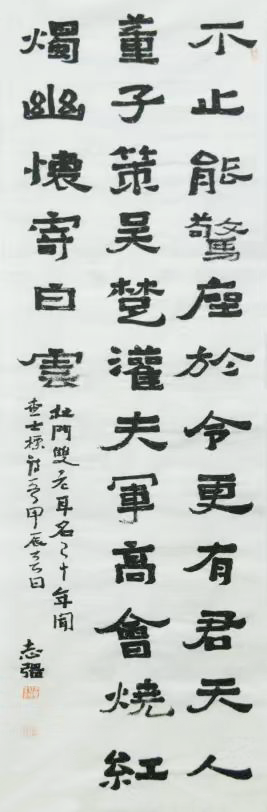 不止能驚座於今更有君天人
董子策吳楚灌夫軍高會燒紅
燭幽懷寄白雲
杜門雙老耳名之十年聞
查士標詩
甲辰
志强